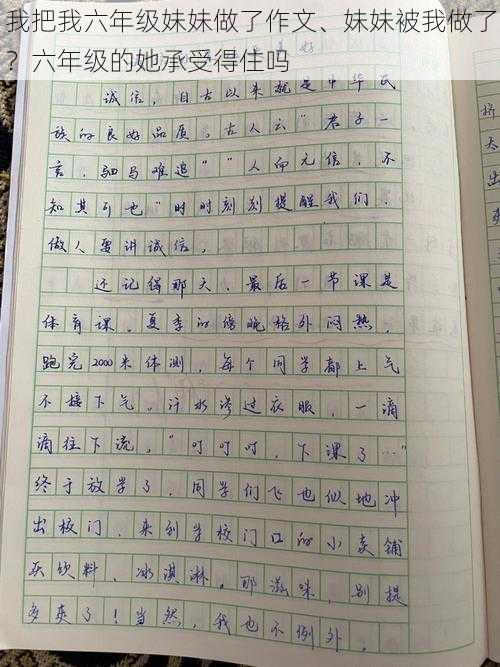 诚信，自古以来就是中华民
族的良好品质。古人云“君子一
言，驷马难追”“人而无信，不
知其可也”时时刻刻提醒我们，
做人要讲诚信。
还记得那天，最后一节课是
体育课。夏季的傍晚格外闷热，
跑完2000米体测，每个同学都上气
不接下气。汗水渗过衣服，一滴
滴往下流。“叮叮叮，下课了…”
终于放学了，同学们飞也似地冲
出校门，来到学校门口的小卖铺
买饮料、冰淇淋。那滋味，别提
多爽了！当然，我也不例外，